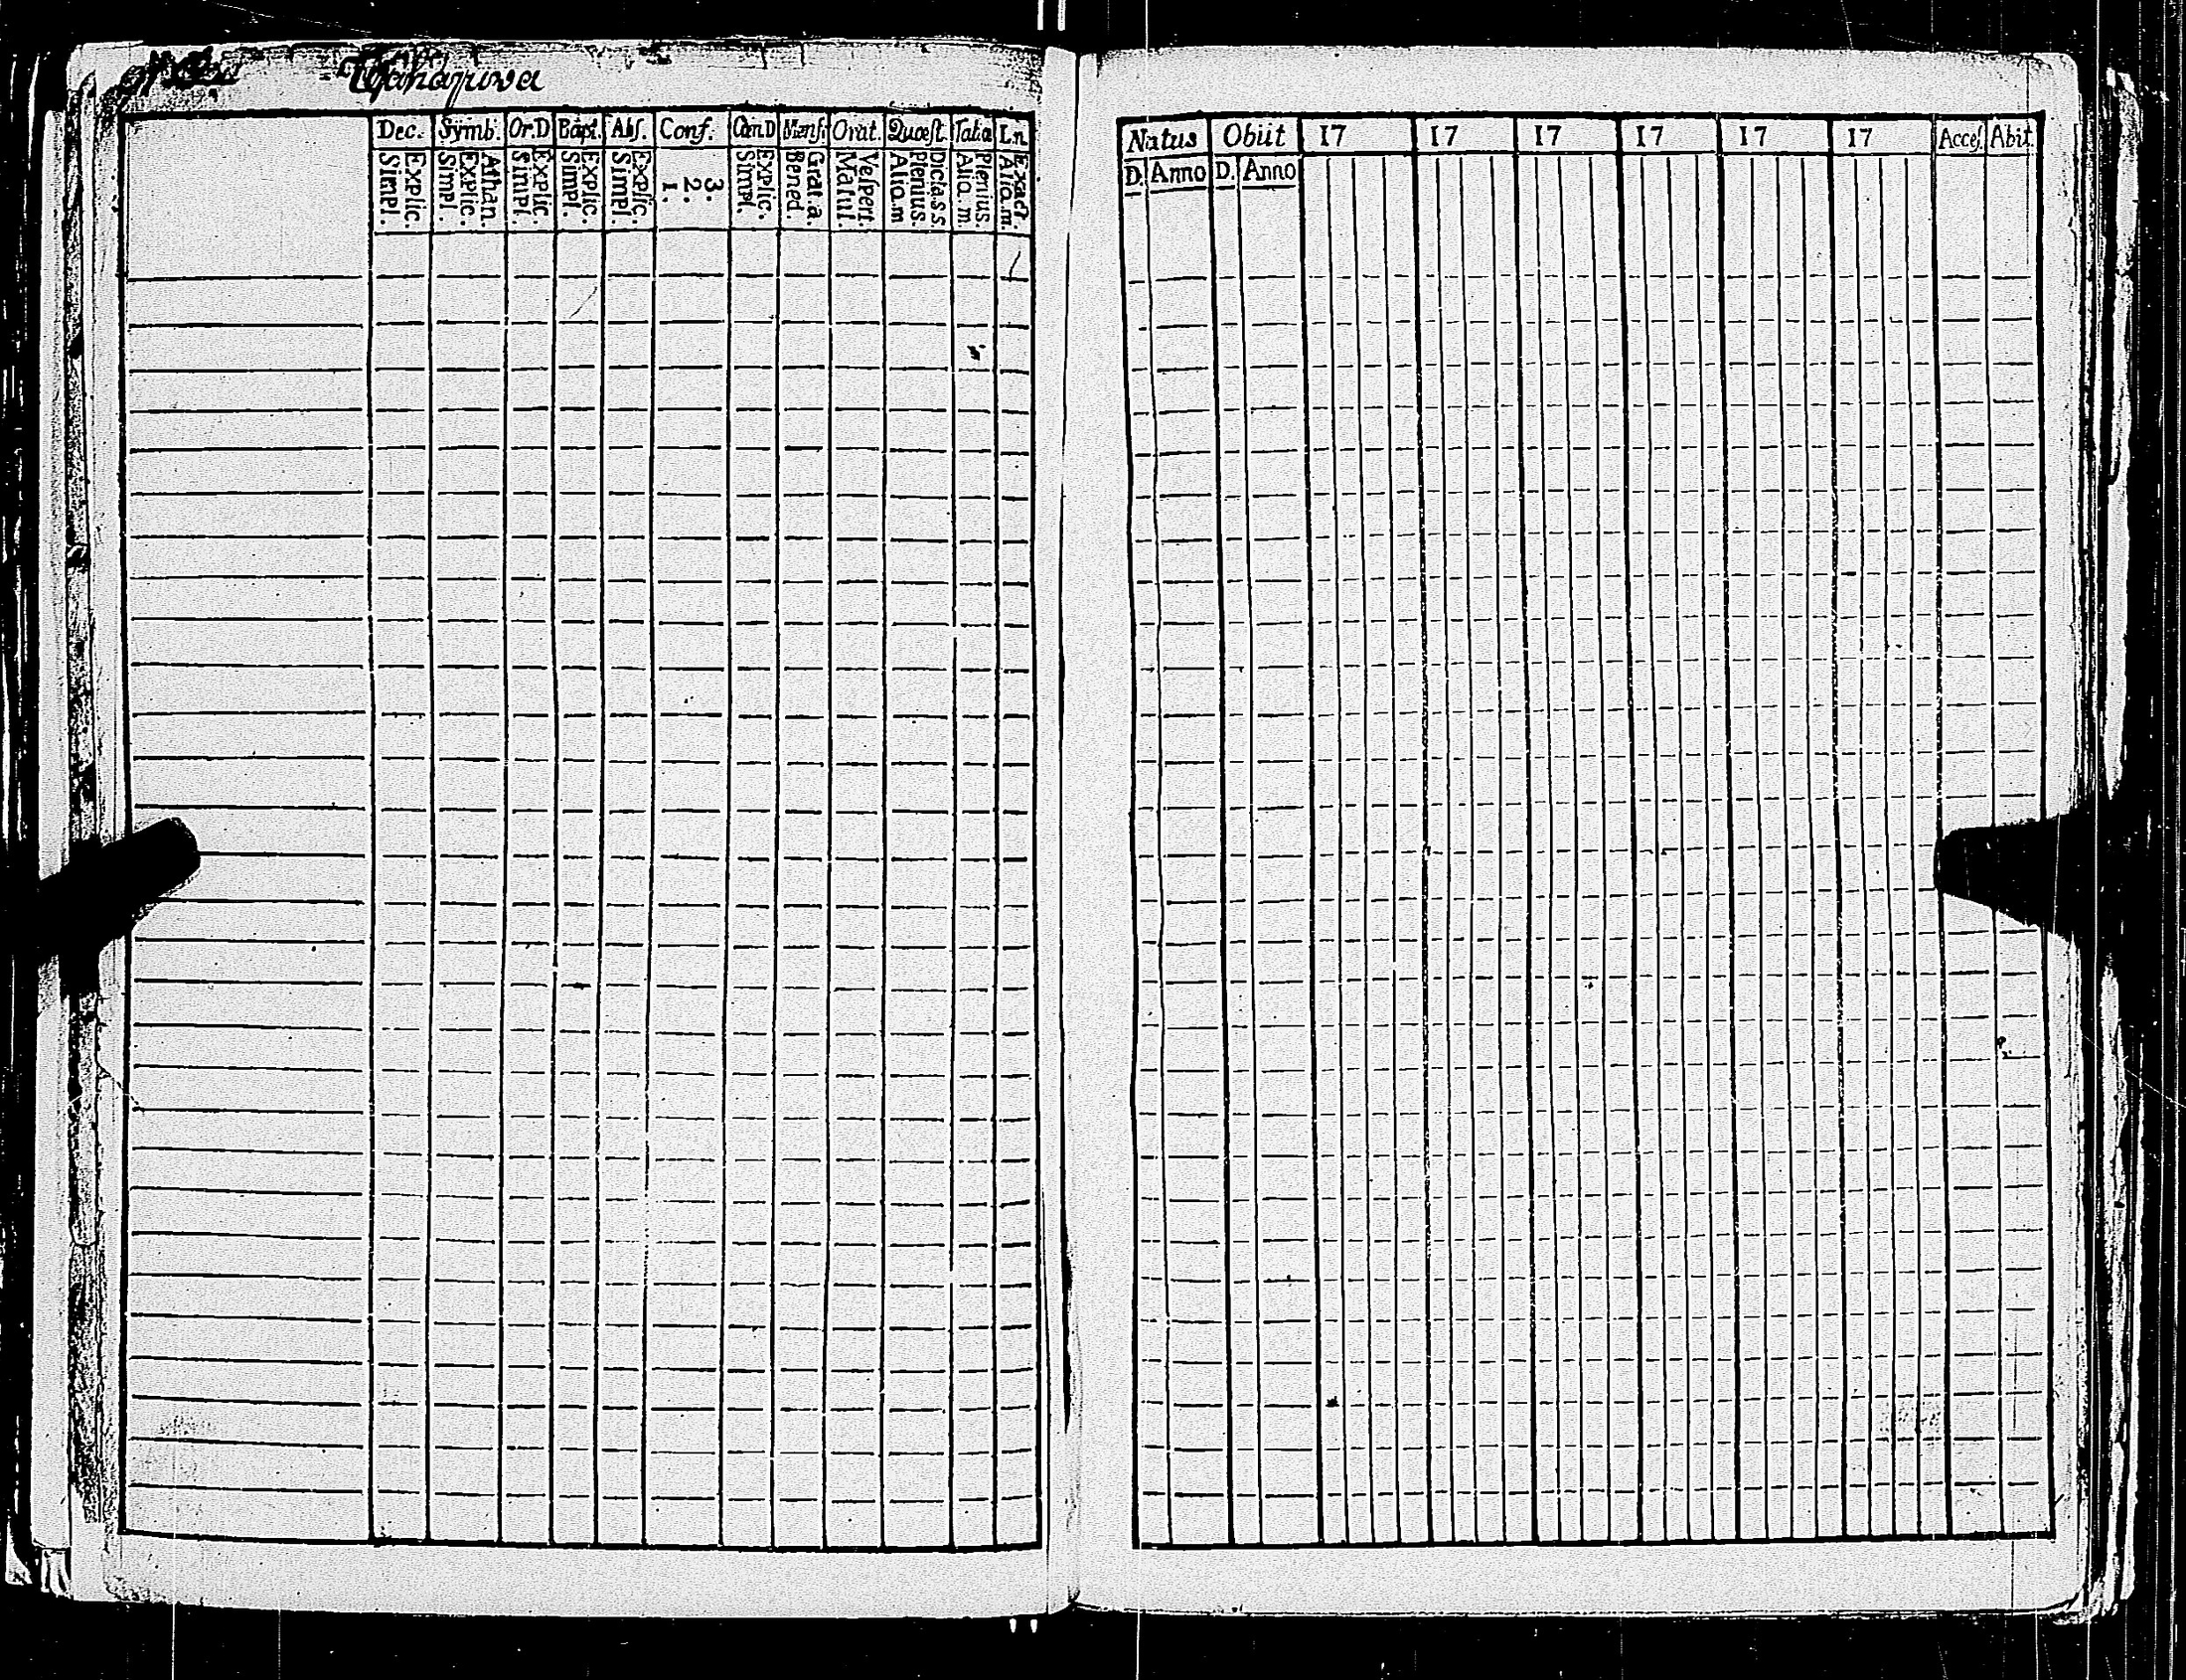 Dec. Symb. Or.D Bapt. Abs. Conf. Cœn.D Mens. Orat. Quæst. Tab.æ L.n
Explic. Simpl. Athan. Explic. Simpl. Explic. Simpl. Explic. Simpl. Explic. Simpl. 3. 2. 1. Explic. Simpl. Grat.a. Bened. Vespert. Matut. Dicta.s.s. Plenius. Aliq.m Plenius. Aliq.m. Exact. Aliq.m.
Natus Obiit 17 17 17 17 17 17 Acces. Abit.
D. Anno D. Anno